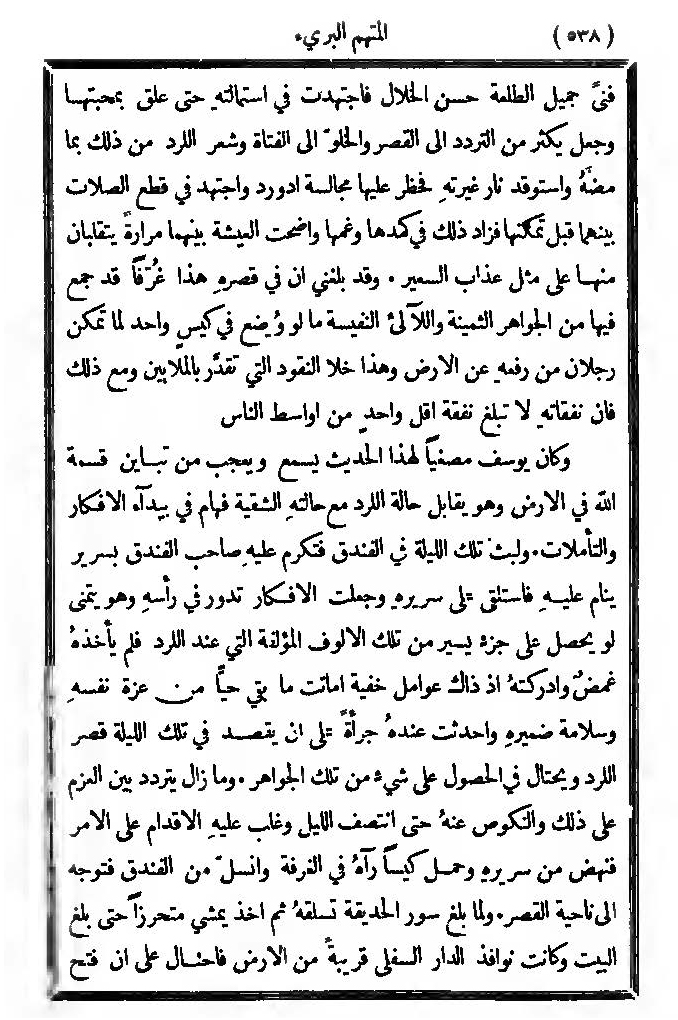 (٥٣٨) المتهم البريء
فتىً جميل الطلعة حسن الخلال فاجتهدت في استمالتهِ حتى علق بمحبتهـا
وجعل يكثر من التردد الى القصر والخلوّ الى الفتاة وشعر اللرد من ذلك بما
مضهُ واستوقد نار غيرتهِ فحظر عليها مجالسة ادورد واجتهد في قطع الصلات
بينهما قبل تمكنها فزاد ذلك في كمدها وغمها واضحت العيشة بينهما مرارةً يتقلبان
منهـا على مثل عذاب السعير . وقد بلغني ان في قصرهِ هذا غُرَفاً قد جمع
فيها من الجواهر الثمينة واللآلئ النفيسة ما لو وُضع في كيسٍ واحد لما تمكن
رجلان من رفعهِ عن الارض وهذا خلا النقود التي تقدَّر بالملايين ومع ذلك
فان نفقاتهِ لا تبلغ نفقة اقل واحدٍ من اواسط الناس
وكان يوسف مصغياً لهذا الحديث يسمع ويعجب من تبـاين قسمة
الله في الارض وهو يقابل حالة اللرد مع حالتهِ الشقية فهام في بيدآء الافكار
والتأملات . ولبث تلك الليلة في الفندق فتكرم عليهِ صاحب الفندق بسرير
ينام عليـهِ فاستلقى على سريرهِ وجعلت الافـكار تدور في رأسهِ وهو يتمنى
لو يحصل على جزءٍ يسير من تلك الالوف المؤلفة التي عند اللرد فلم يأخذهُ
غمضٌ وادركتهُ اذ ذاك عوامل خفية اماتت ما بقي حياً من عزة نفسهِ
وسلامة ضميرهِ واحدثت عندهُ جرأةً على ان يقصـد في تلك الليلة قصر
اللرد ويحتال في الحصول على شيءٍ من تلك الجواهر . وما زال يتردد بين العزم
على ذلك والنكوص عنهُ حتى انتصف الليل وغلب عليهِ الاقدام على الامر
فنهض من سريرهِ وحمـل كيساً رآهُ في الغرفة وانسلّ من الفندق فتوجه
الى ناحية القصر . ولما بلغ سور الحديقة تسلقهُ ثم اخذ يمشي متحرزاً حتى بلغ
البيت وكانت نوافذ الدار السفلى قريبةً من الارض فاحتـال على ان فتح